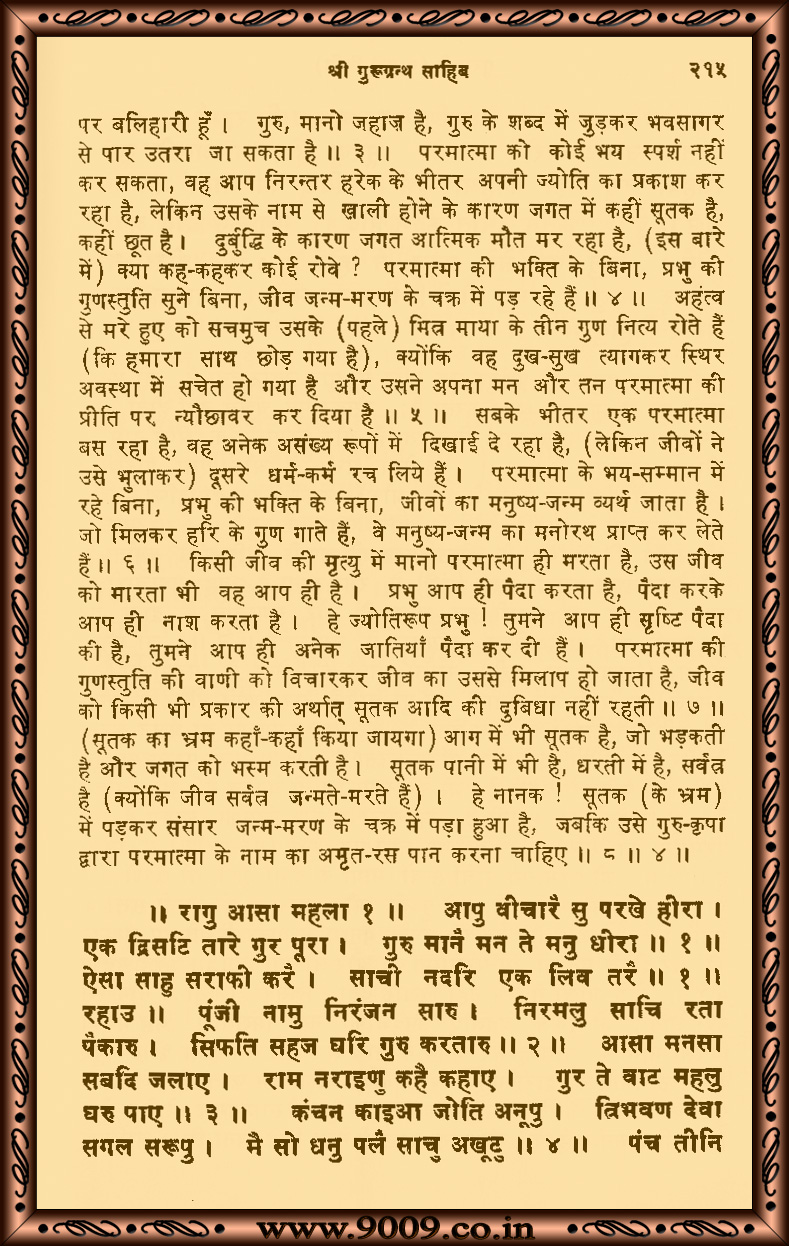 श्री गुरूग्रन्थ साहिब २१५
पर बलिहारी हूँ। गुरु, मानो जहाज़ है, गुरु के शब्द में जुड़कर भवसागर
से पार उतरा जा सकता है॥ ३ ॥ परमात्मा को कोई भय स्पर्श नहीं
कर सकता, वह आप निरन्तर हरेक के भीतर अपनी ज्योति का प्रकाश कर
रहा है, लेकिन उसके नाम से खाली होने के कारण जगत में कहीं सूतक है,
कहीं छूत है। दुर्बुद्धि के कारण जगत आत्मिक मौत मर रहा है, (इस बारे
में) क्या कह-कहकर कोई रोवे ? परमात्मा की भक्ति के बिना, प्रभु की
गुणस्तुति सुने बिना, जीव जन्म-मरण के चक्र में पड़ रहे हैं॥ ४ ॥ अहंत्व
से मरे हुए को सचमुच उसके (पहले) मित्र माया के तीन गुण नित्य रोते हैं
(कि हमारा साथ छोड़ गया है), क्योंकि वह दुख-सुख त्यागकर स्थिर
अवस्था में सचेत हो गया है और उसने अपना मन और तन परमात्मा की
प्रीति पर न्यौछावर कर दिया है॥ ५ ॥ सबके भीतर एक परमात्मा
बस रहा है, वह अनेक असंख्य रूपों में दिखाई दे रहा है, (लेकिन जीवों ने
उसे भुलाकर) दूसरे धर्म-कर्म रच लिये हैं। परमात्मा के भय-सम्मान में
रहे बिना, प्रभु की भक्ति के बिना, जीवों का मनुष्य-जन्म व्यर्थ जाता है।
जो मिलकर हरि के गुण गाते हैं, वे मनुष्य-जन्म का मनोरथ प्राप्त कर लेते
हैं॥ ६ ॥ किसी जीव की मृत्यु में मानो परमात्मा ही मरता है, उस जीव
को मारता भी वह आप ही है। प्रभु आप ही पैदा करता है, पैदा करके
आप ही नाश करता है। हे ज्योतिरूप प्रभु ! तुमने आप ही सृष्टि पैदा
की है, तुमने आप ही अनेक जातियाँ पैदा कर दी हैं। परमात्मा की
गुणस्तुति की वाणी को विचारकर जीव का उससे मिलाप हो जाता है, जीव
को किसी भी प्रकार की अर्थात् सूतक आदि की दुबिधा नहीं रहती॥ ७ ॥
(सूतक का भ्रम कहाँ-कहाँ किया जायगा) आग में भी सूतक है, जो भड़कती
है और जगत को भस्म करती है। सूतक पानी में भी है, धरती में है, सर्वत्र
है (क्योंकि जीव सर्वत्र जन्मते-मरते हैं)। हे नानक ! सूतक (के भ्रम)
में पड़कर संसार जन्म-मरण के चक्र में पड़ा हुआ है, जबकि उसे गुरु-कृपा
द्वारा परमात्मा के नाम का अमृत-रस पान करना चाहिए॥ ८ ॥ ४ ॥
॥ रागु आसा महला १ ॥ आपु वीचारै सु परखे हीरा।
एक द्रिसटि तारे गुर पूरा। गुरु मानै मन ते मनु धीरा॥ १ ॥
ऐसा साहु सराफी करै। साची नदरि एक लिव तरै॥ १ ॥
रहाउ॥ पूंजी नामु निरंजन सारु। निरमलु साचि रता
पैकारु। सिफति सहज घरि गुरु करतारु॥ २ ॥ आसा मनसा
सबदि जलाए। राम नराइणु कहै कहाए। गुर ते वाट महलु
घरु पाए॥ ३ ॥ कंचन काइआ जोति अनूपु। त्रिभवण देवा
सगल सरूपु। मै सो धनु पलै साचु अखूटु॥ ४ ॥ पंच तीनि
www.9009.co.in